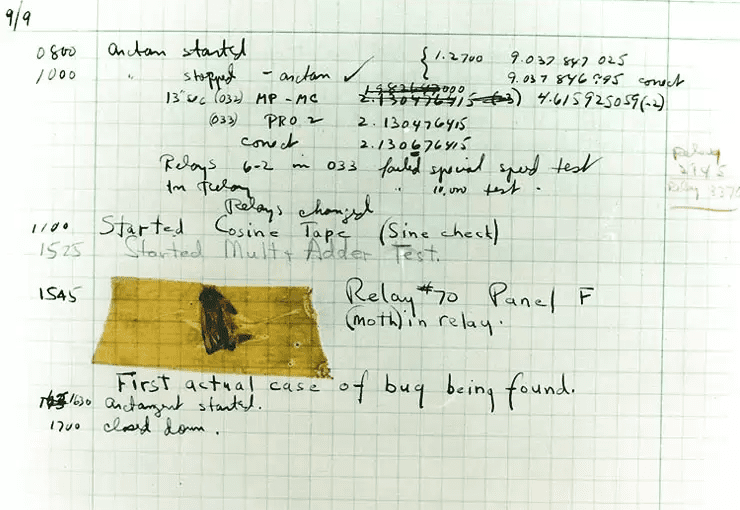 9/9
0800 arctan started { 1.2700 9.037 847 025
1000 " stopped - arctan ✓ 9.037 846 995 correct
13"uc (032) MP - MC 2.130476415 (-3) 4.615925059(-2)
(033) PRO 2 2.130476415
correct 2.130676415
Relays 6-2 in 033 failed special speed test
in relay " 10,000 test.
Relay
2145
Relay 3370
Relays changed
1100 Started Cosine Tape (Sine check)
1525 Started Mult + Adder Test.
1545 Relay #70 Panel F
(moth) in relay.
First actual case of bug being found.
1630 arctangent started.
1700 closed down.